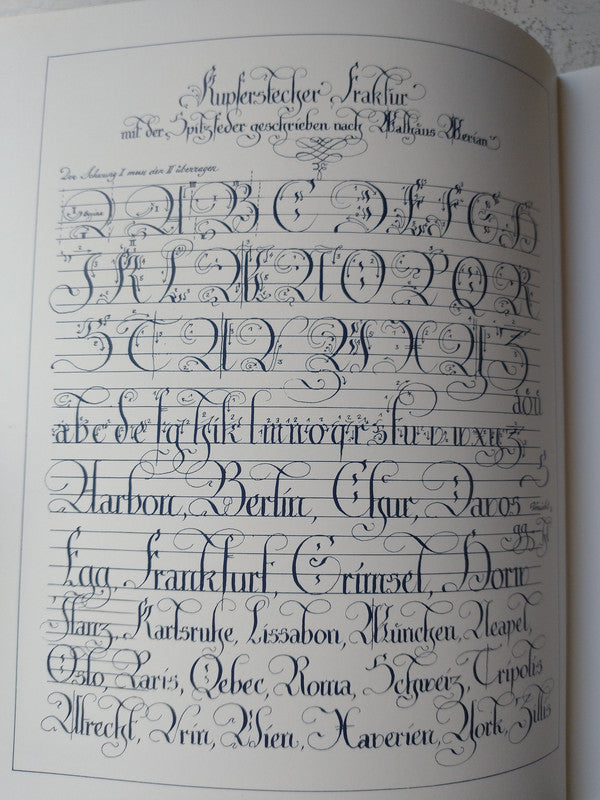 Kupferstecher Fraktur
mit der Spitzfeder geschrieben nach Mathäus Merian
Der Schwung I muss den II überragen
A A B C D E F G H
I K L M N O P Q R
S T U V W X Y Z
a b c d e f g h i k l m n o p q r s t u v w x y z
äöü
Aarbon, Berlin, Chur, Davos
Egg, Frankfurt, Grimsel, Horw
gg
Ilanz, Karlsruhe, Lissabon, München, Neapel,
Oslo, Paris, Qebec, Roma, Schwyz, Tripolis
Utrecht, Vrin, Wien, Xaverien, York, Zillis